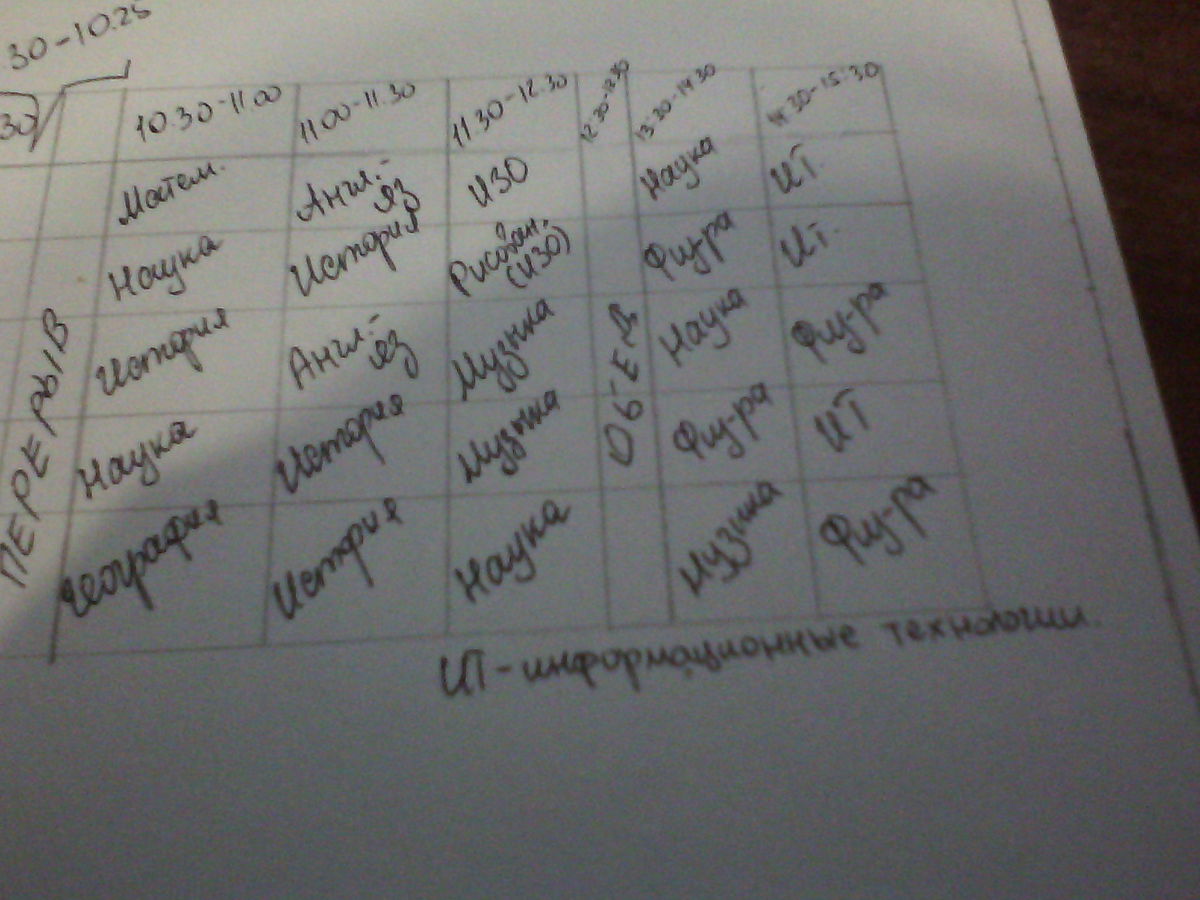 30-10.25
30
10.30-11.00 11.00-11.30 11.30-12.30 12:30-13:30 13:30-14:30 14:30-15:30
Матем. Англ.-яз ИЗО Наука ИТ.
Наука История Рисован. (ИЗО) Физ-ра ИТ.
История Англ-яз Музыка Наука Физ-ра
Наука История Музыка Физ-ра ИТ
География История Наука Музыка Физ-ра
ПЕРЕРЫВ
ОБЕД
ИТ-информационные технологии.